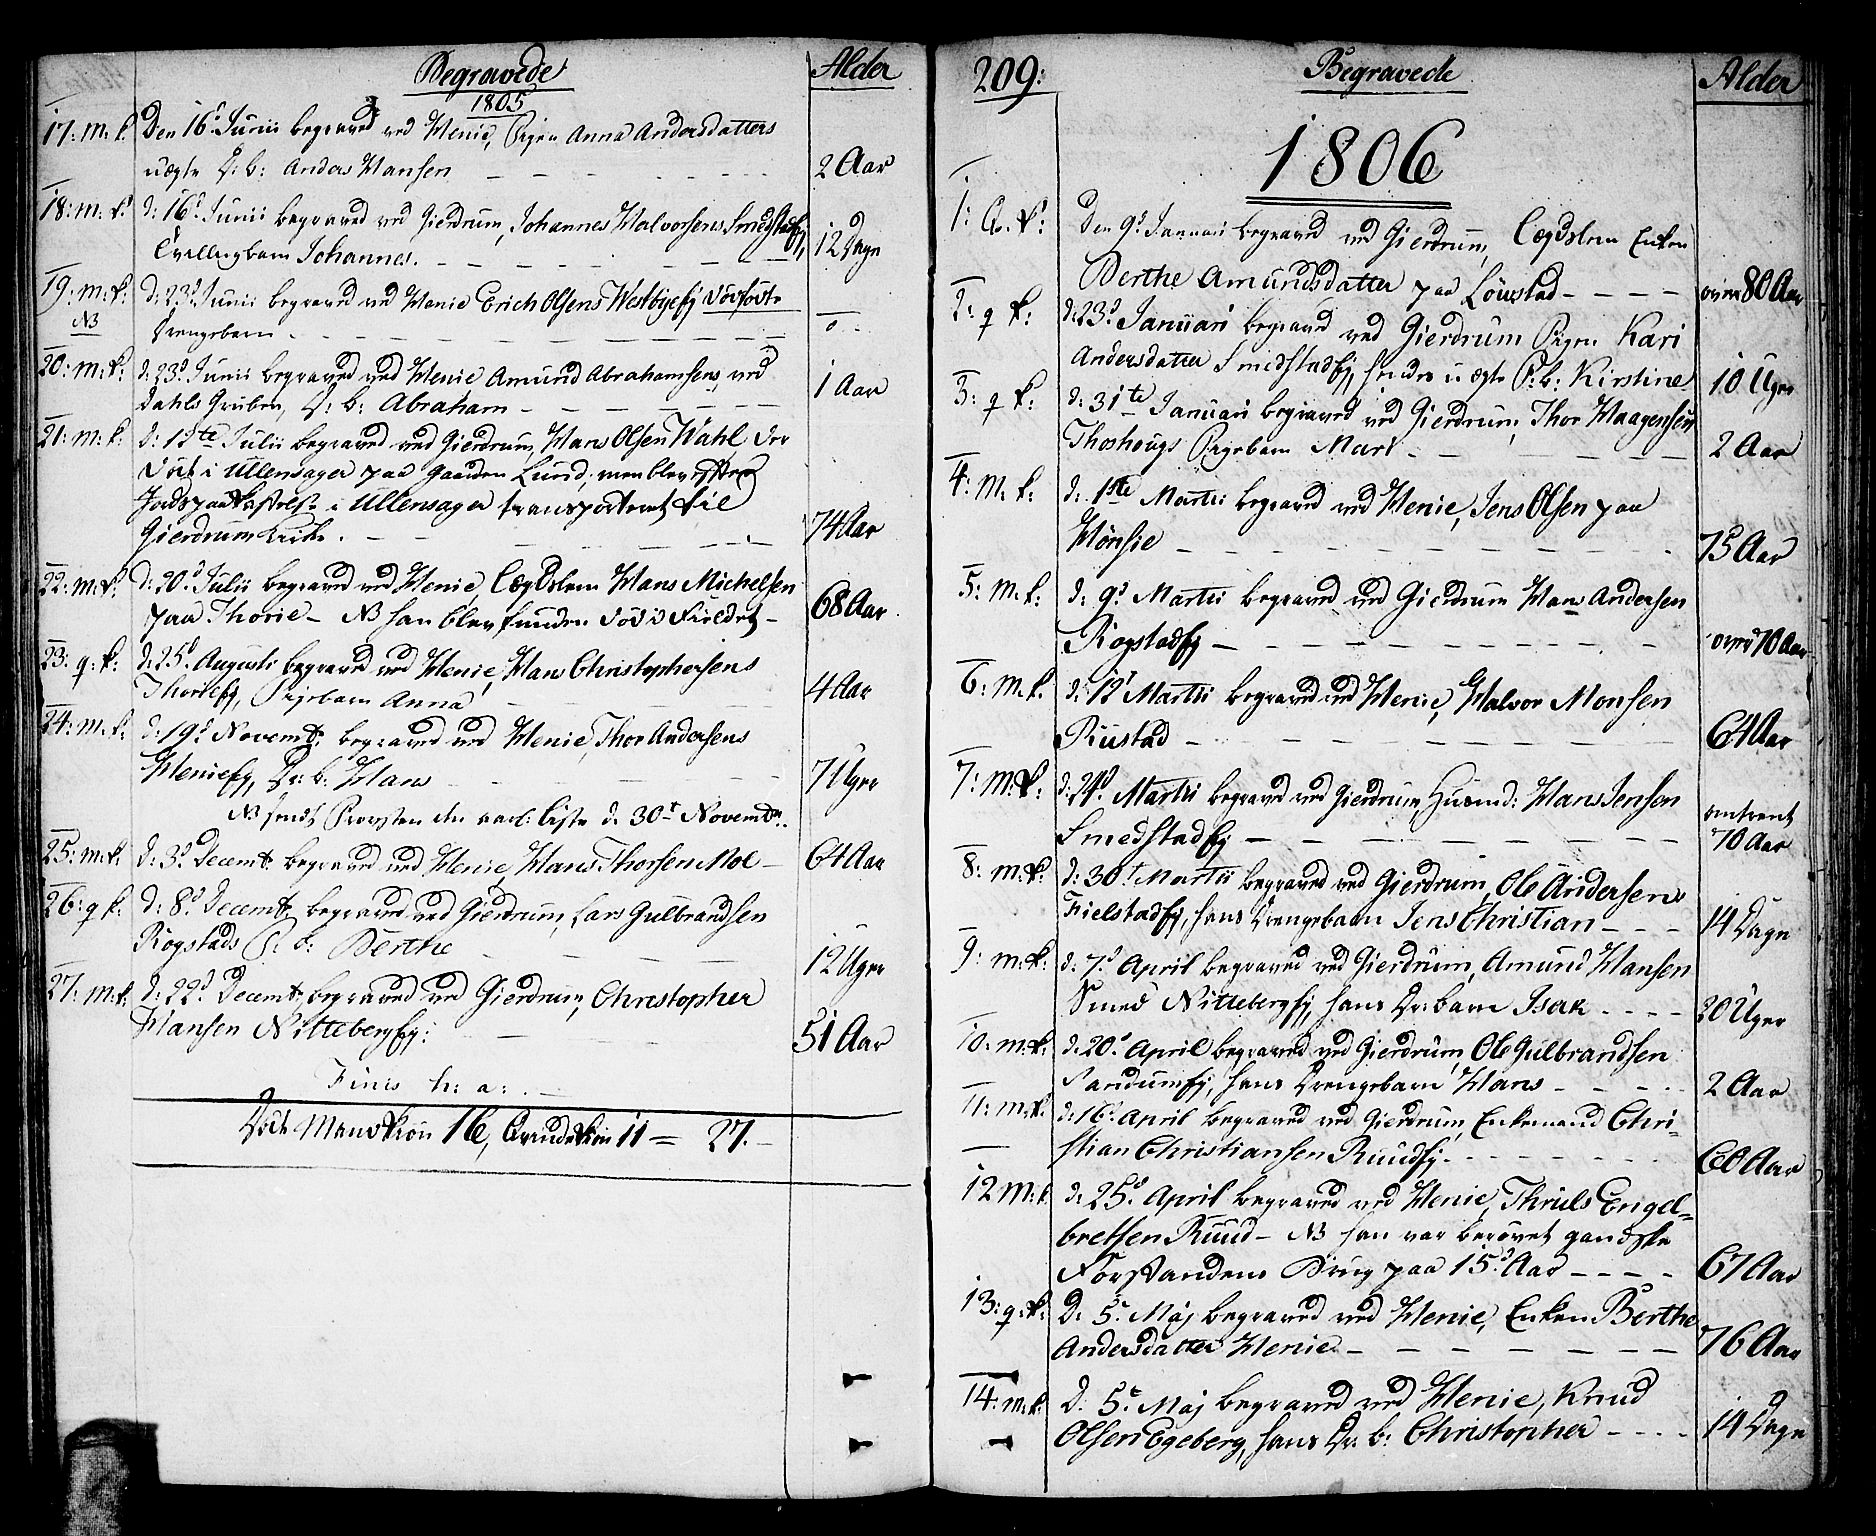 Begravede
Alder
1805
17: m: k: Den 16d Junii begraved ved Henie, Pigen Anna Andersdatters
uægte D: b: Anders Hansen 2 Aar
18: m: k: d: 16d Junii begraved ved Gierdrum, Johannes Halvorsens Smedstadfj,
Tvillingbarn Johannes. 12 Dage
19: m: k: d: 23d Junii begraved ved Henie Erich Olsens Westbyefj dödfödte
NB Drengebarn o
20: m: k: d: 23d Junii begraved ved Henie Amund Abrahamsens ved
Dahls Gruben, D: b: Abraham 1 Aar
21: m: k: d: 13te Julii begraved ved Gierdrum, Hans Olsen Wahl der
döde i Ullensager paa Gaarden Lund, men blev efter
Jordspaakastelse i Ullensager transporteret til
Gierdrum Kirke. 74 Aar
22: m: k: d: 20d Julii begraved ved Henie, Lægdslem Hans Michelsen
paa Thorie - NB han blev funden död i Fieldet 68 Aar
23: q: k: d: 25d Augusti begraved ved Henie, Hans Christophersens
Thoriefj, Pigebarn Anna 4 Aar
24: m: k: d: 19d Novembr. begraved ved Henie, Thor Andersens
Heniefj, Dr: b: Hans 7 Uger
NB sendt Provsten den aarl: Liste d. 30t Novembr.
25: m: k: d: 3d Decembr. begraved ved Henie, Hans Thorsen Moe 64 Aar
26: q k: d: 8d Decembr. begraved ved Gierdrum, Lars Gulbrandsen
Rogstads P: b: Berthe 12 Uger
27: m: k. d: 22d Decembr. begraved ved Gierdrum, Christopher
Hansen Nittebergfj: 51 Aar
Finis h: a:
Döde Mandkiön 16, Qvindekiön 11 = 27.
209:
Begravede
Alder
1806
1: Qv. k: Den 9d Januari begraved ved Gierdrum, Lægdslem Enken
Berthe Amundsdatter paa Löwstad over 80 Aar
2: q k: d: 23d Januari begraved ved Gierdrum Pigen Kari
Andersdatter Smedstadfj, hendes uægte P: b: Kirstine 10 Uger
3: q k: d: 31te Januari begraved ved Gierdrum, Thor Haagensens
Thoshougs Pigebarn Mari 2 Aar
4: m. k: d: 1ste Martii begraved ved Henie, Jens Olsen paa
Hönsie 75 Aar
5: m. k: d: 9d Martii begraved ved Gierdrum Hans Andersen
Rogstadfj over 70 Aar
6: m. k. d: 12t Martii begraved ved Henie, Halvor Monsen
Rustad 64 Aar
7: m: k: d: 24d Martii begraved ved Gierdrum, Husmd: Hans Jensen
Smedstadfj omtrent
70 Aar
8: m: k: d: 30t Martii begraved ved Gierdrum, Ole Andersens
Fielstadfj, hans Drengebarn Jens Christian 14 Dage
9: m: k: d: 7d April begraved ved Gierdrum, Amund Hansen
Smed Nittebergfj, hans Dr: barn Isak 30 Uger
10: m: k: d: 20d April begraved ved Gierdrum, Ole Gulbrandsen
Sandumfj, hans Drengebarn Hans 2 Aar
11: m: k. d: 16d April begraved ved Gierdrum, Enkemand Chri-
stian Christiansen Ruudfj. 60 Aar
12 m: k d: 25d April begraved ved Henie, Thruls Engel=
bretsen Ruud - NB han var berövet gandske
Forstandens Brug paa 15d Aar 67 Aar
13: q: k: d: 5t Maj begraved ved Henie, Enken Berthe
Andersdatter Henie 76 Aar
14: m. k: d. 5t Maj begraved ved Henie, Knud
Olsen Egeberg, hans Dr: b: Christopher 14 Dage